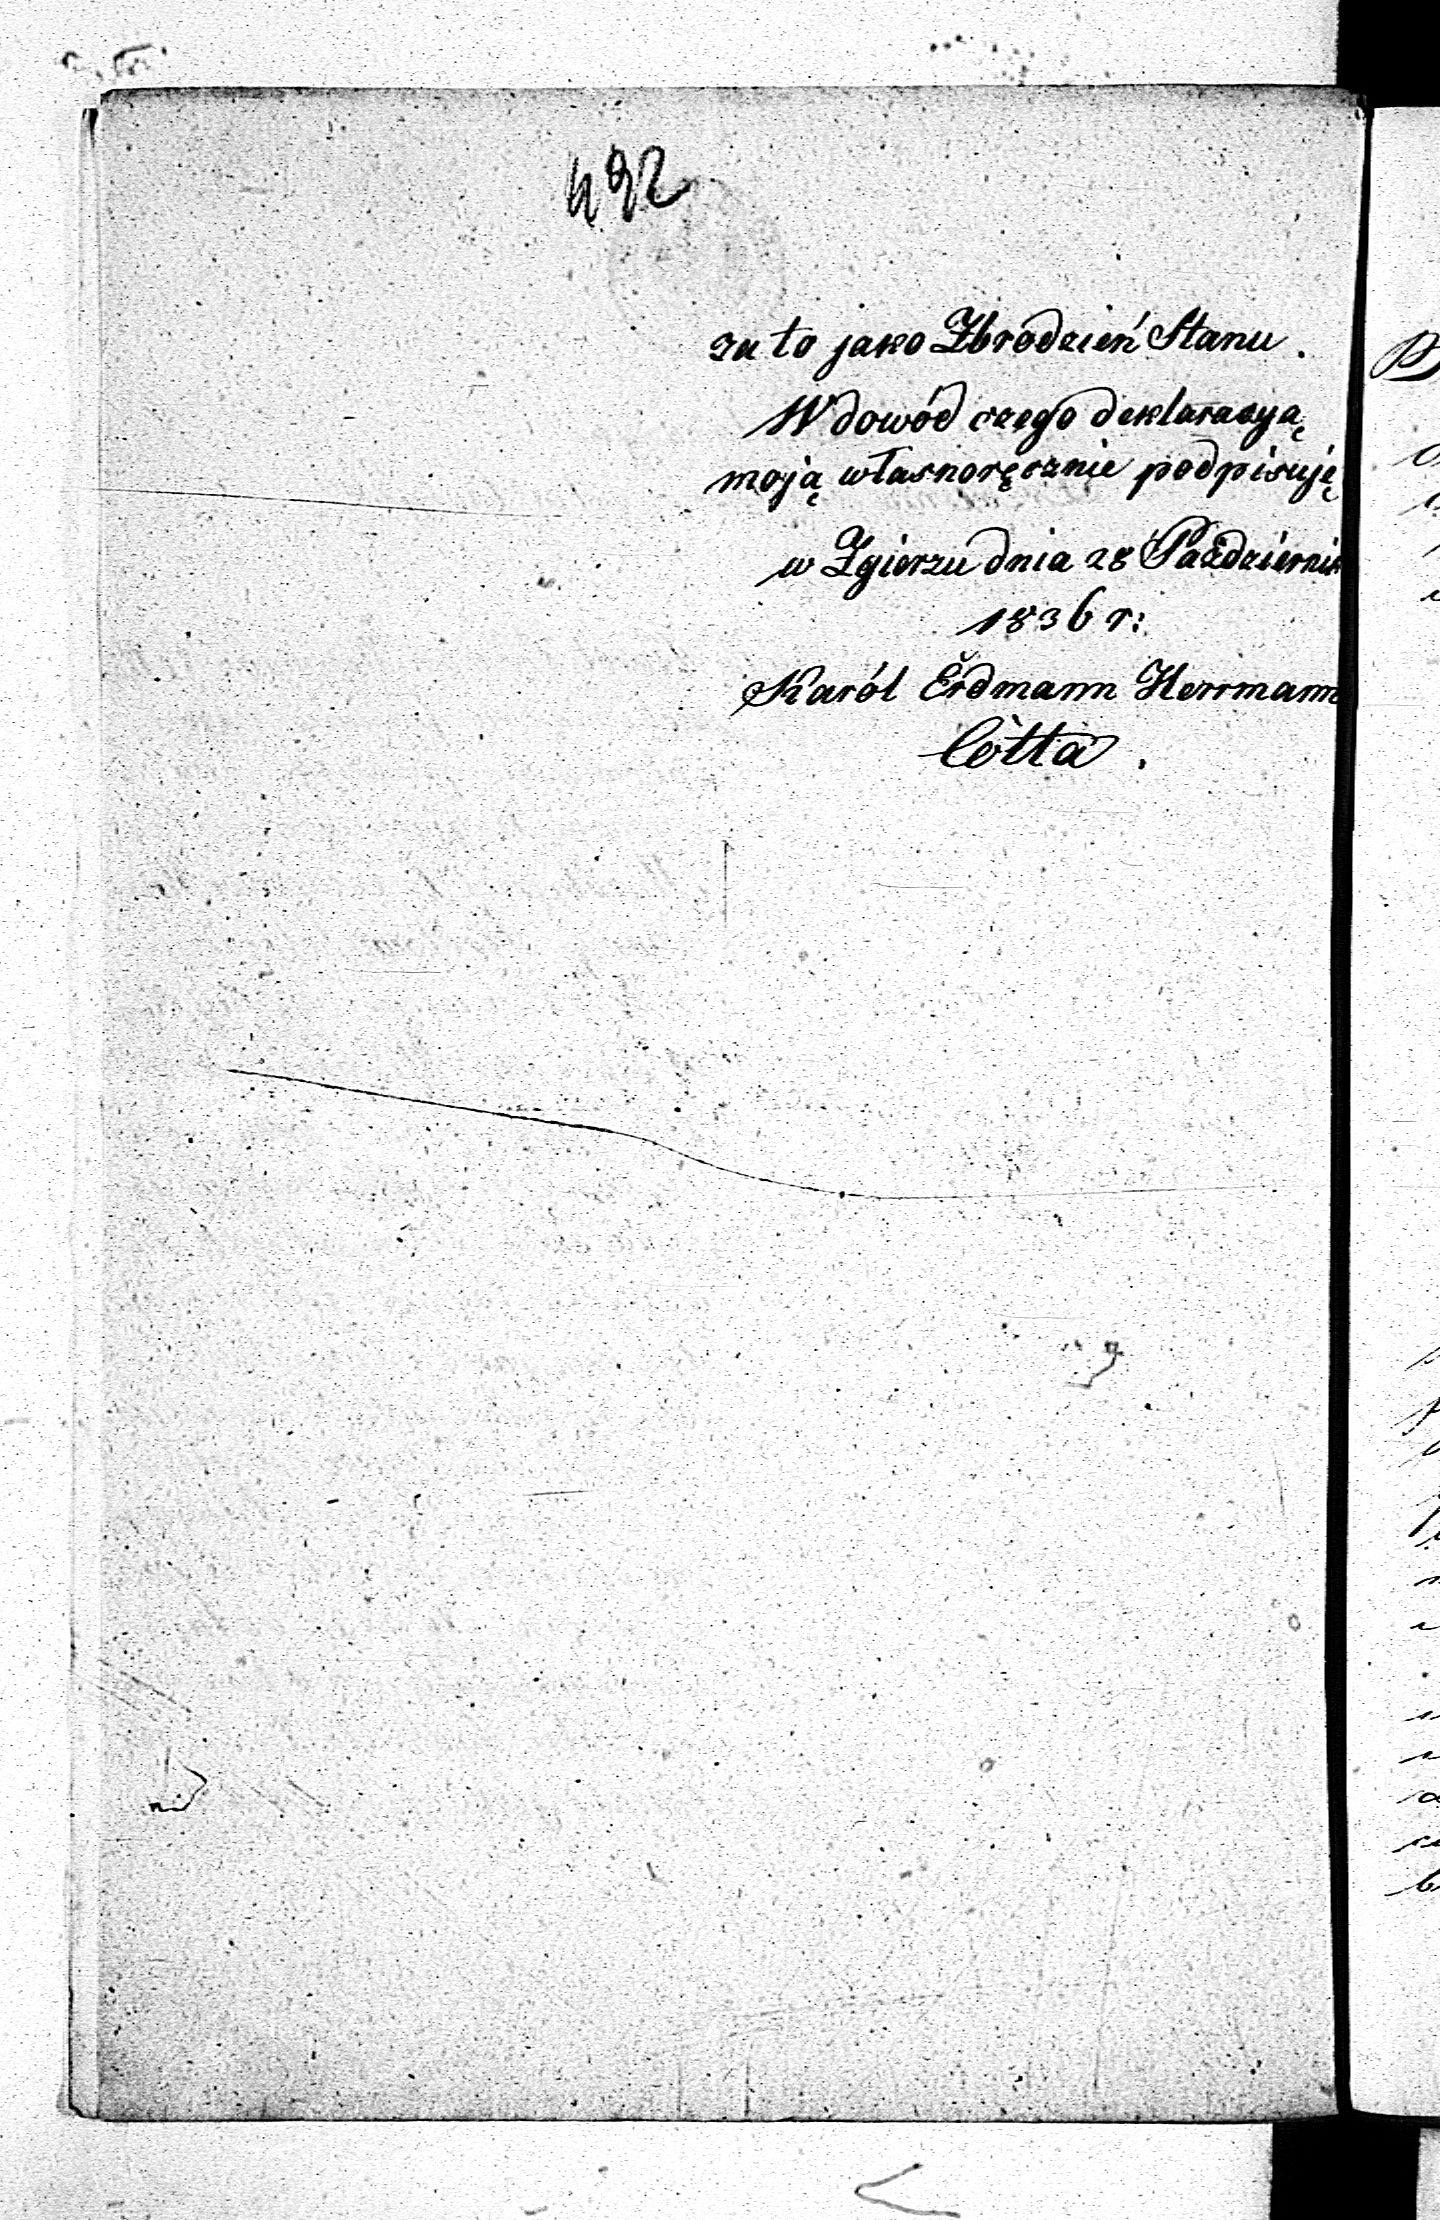 492
za to jako Zbrodzień Stanu.
W dowód czego deklaracyą
moją własnoręcznie podpisuję
w Zgierzu dnia 28 Październik
1836 r:
Karól Erdmann Herrmann
Cotta.